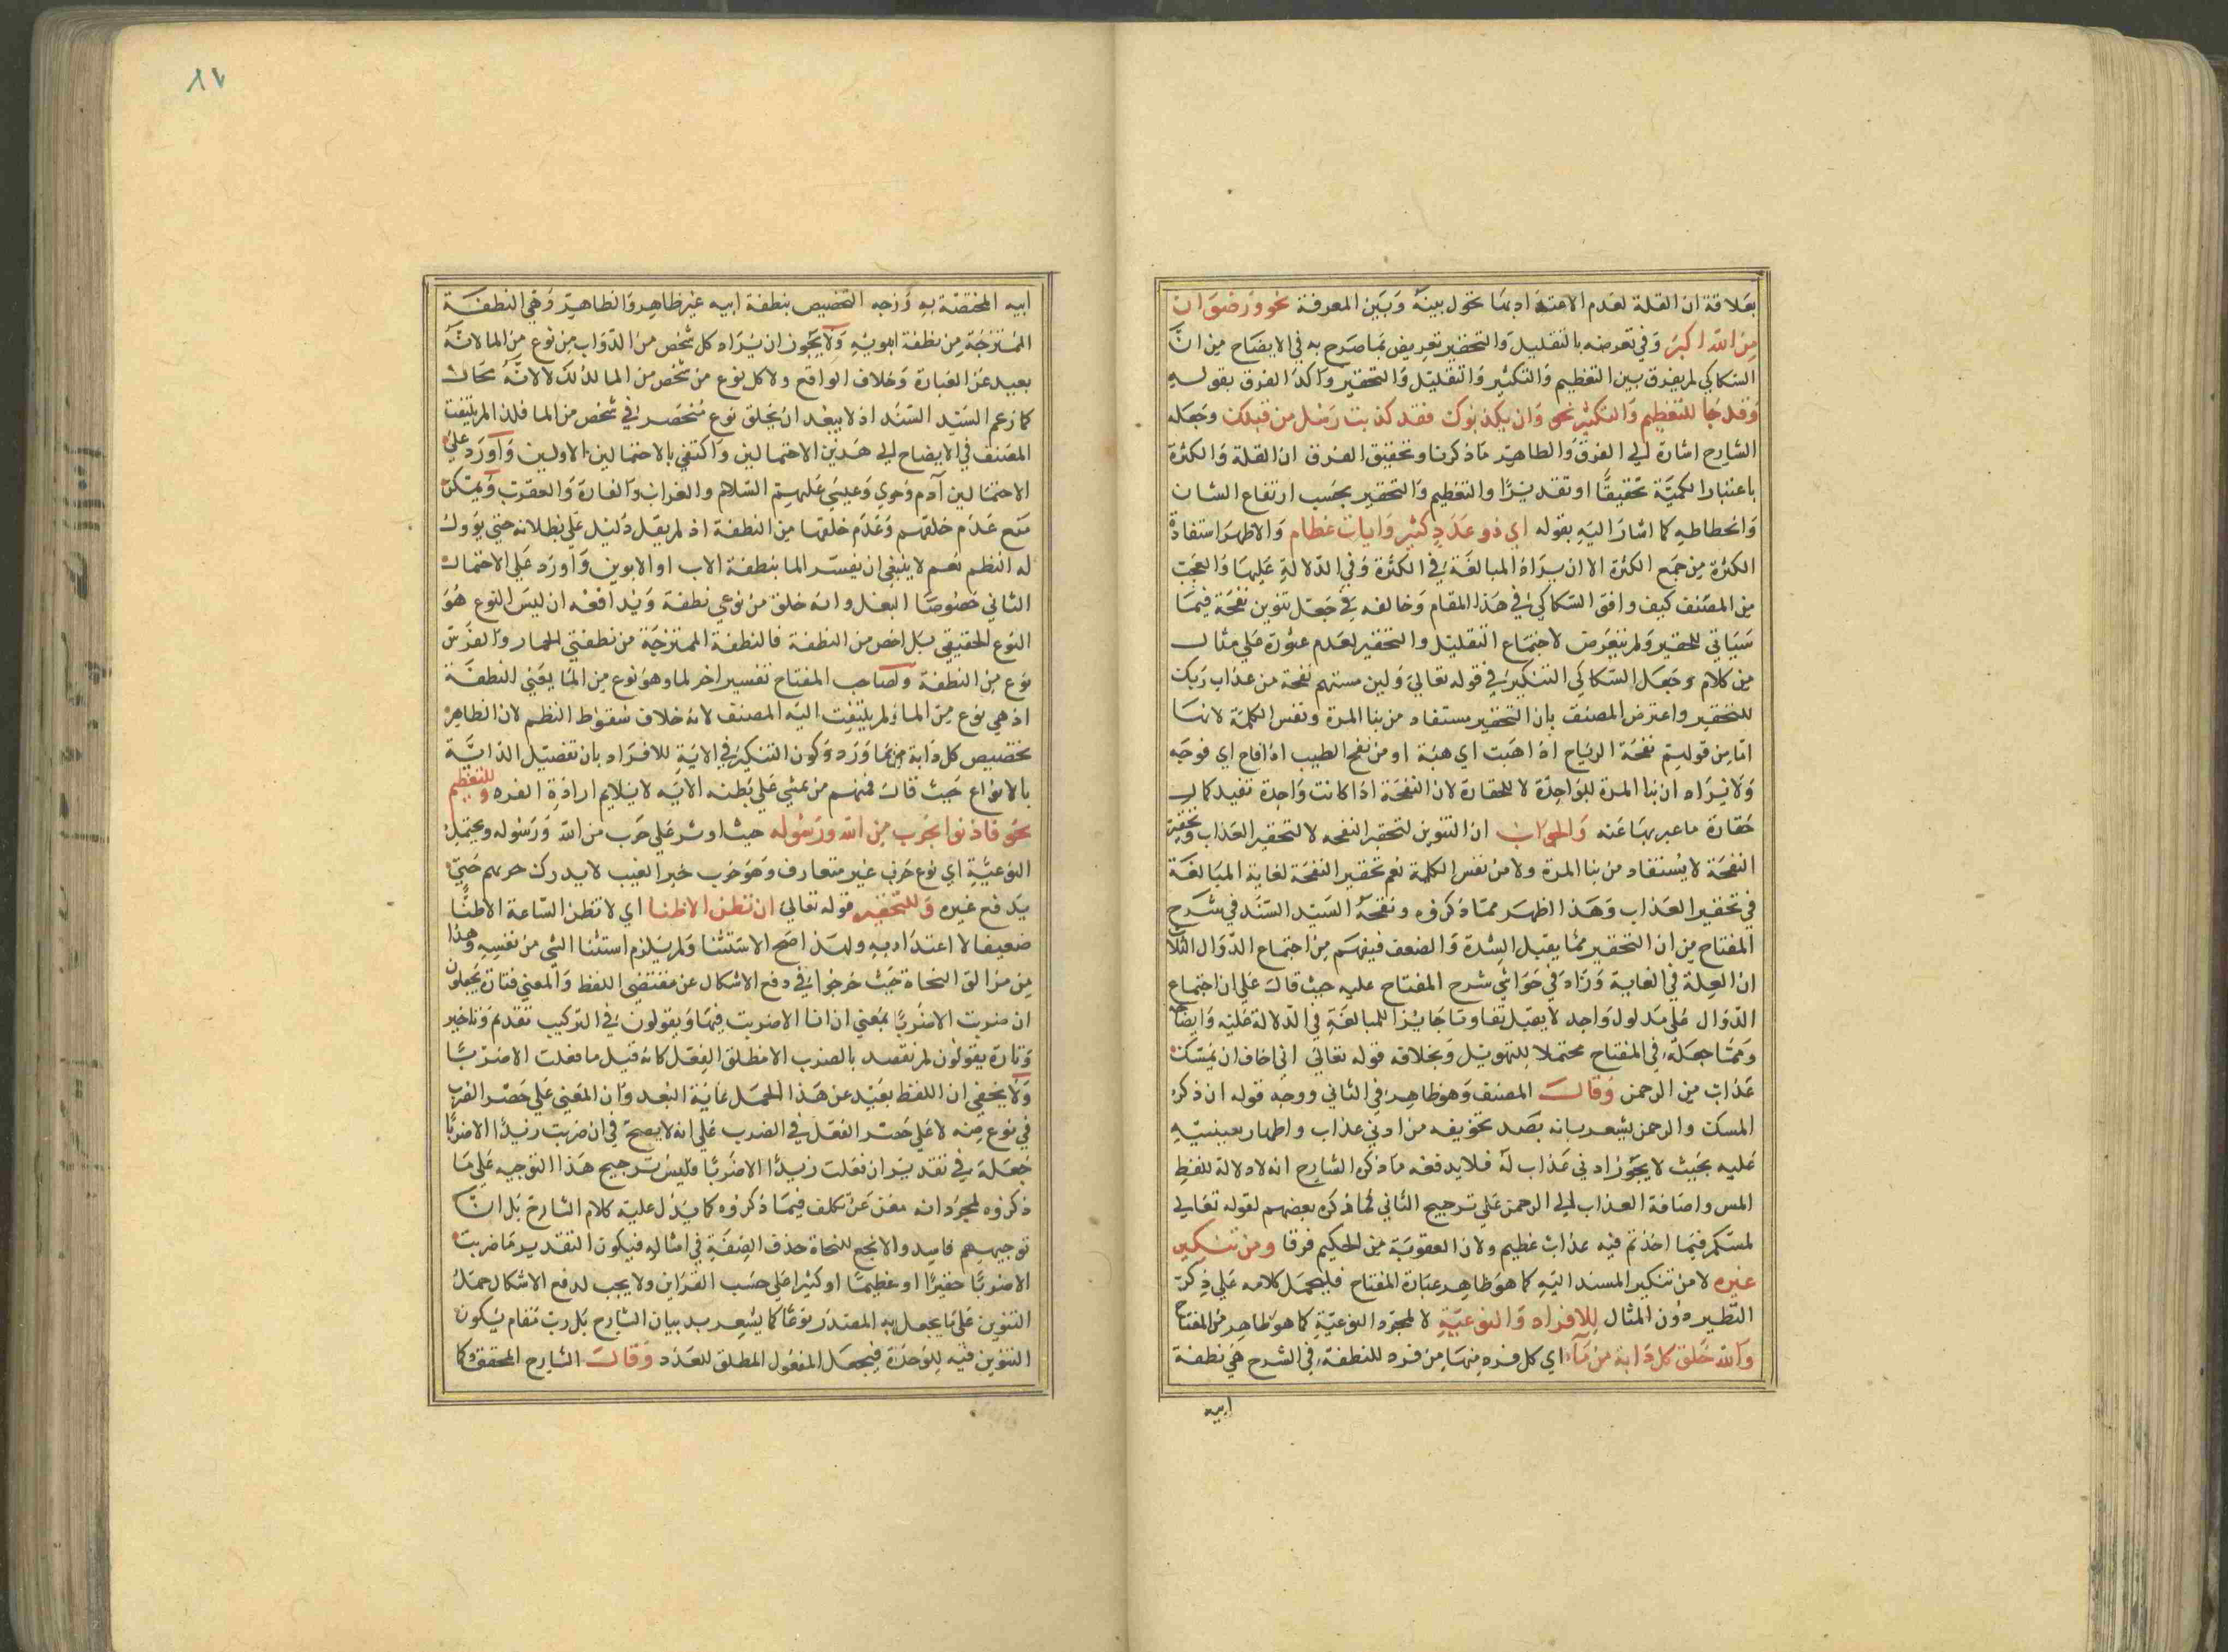 بعلاقة ان القلة لعدم الاعتداد بما تحول بينه وبين المعرفة نحو ورضوان
من الله اكبر وفي تعرضه بالتقليل والتحقير تعريض بما صرح به في الايضاح من ان
السكاكي لم يفرق بين التعظيم والتكثير والتقليل والتحقير واكد الفرق بقوله
وقد جا للتعظيم والتكثير نحو وان يكذبوك فقد كذبت رسل من قبلك وجعله
الشارح اشارة الي الفرق والظاهر ما ذكرنا وتحقيق الفرق ان القلة والكثرة
باعتبار الكمية تحقيقا او تقديرا والتعظيم والتحقير بحسب ارتفاع الشان
وانحطاطه كما اشار اليه بقوله اي ذو عدد كثير وايات عظام والاظهر استفادة
الكثرة من جمع الكثرة الا ان يراد المبالغة في الكثرة وفي الدلالة عليها والعجب
من المصنف كيف وافق السكاكي في هذا المقام وخالفه في جعل تنوين نفحة فيما
سياتي للحقير ولم يتعرض لاجتماع التقليل والتحقير لعدم عثوره علي مثال
من كلام وجعل السكاكي التنكير في قوله تعالي ولين مستهم نفحة من عذاب ربك
للتحقير واعترض المصنف بان التحقير مستفاد من بنا المرة ونفس الكلمة لانها
اما من قولهم نفحة الرياح اذا هبت اي هبة او من نفح الطيب اذا فاح اي فوحه
ولا يراد ان بنا المرة للواحدة لا للحقارة لان النفحة اذا كانت واحدة تفيد كمال
حقارة ما عبر بها عنه والجواب ان التنوين لتحقير النفحه لا لتحقير العذاب وتحقير
النفحة لا يستفاد من بنا المرة ولا من نفس الكلمة نعم تحقير النفحة لغاية المبالغة
في تحقير العذاب وهذا اظهر مما ذكروه ونفحة السيد السند في شرح
المفتاح من ان التحقير مما يقبل الشدة والضعف فيفهم من اجتماع الدوال الثلاث
ان العلة في الغاية وزاد في حواشي شرح المفتاح عليه حيث قال علي ان اجتماع
الدوال علي مدلول واحد لا يقبل تفاوتا جايز للمبالغة في الدلالة عليه وايضاحه
ومما جعله في المفتاح محتملا للتهويل وبخلافه قوله تعالي اني اخاف ان يمسك
عذاب من الرحمن وقال المصنف وهو ظاهر في الثاني ووجه قوله ان ذكر
المسك والرحمن يشعر بانه بصد تخويفه من ادني عذاب واظهار
عليه بحيث لا يجوز ادني عذاب له فلا يدفعه ما ذكره الشارح انه لا دلالة للفظ
المس واضافة العذاب الي الرحمن علي ترجيح الثاني كما ذكره بعضهم لقوله تعالي
لمسكم فيما اخذتم فيه عذاب عظيم ولان العقوبة من الحكيم فرقا ومن تنكير
غيره لا من تنكير المسند اليه كما هو ظاهر عبارة المفتاح فليحمل كلامه علي ذكر
النظير دون المثال للافراد والنوعية لا لمجرد النوعية كما هو ظاهر من المفتاح
والله خلق كل دابة من ماء اي كل فرد منها من فرد للنطفة في الشرح هي نطفة
ابيه
٨٧
ابيه المختصة به وزجه التخصيص بنطفة ابيه غير ظاهر والظاهر وهي النطفة
الممتزجة من نطفة ابويه ولا يجوز ان يراد كل شخص من الدواب من نوع من الما لانه
بعيد عن العبارة وخلاف الواقع ولا كل نوع من شخص من الما لذلك لا لانه محال
كما زعم السيد السند اذ لا يبعد ان يخلق نوع منحصر في شخص من الما فلذا لم يلتفت
المصنف في الايضاح الي هذين الاحتمالين واكتفي بالاحتمالين الاولين واورد علي
الاحتمالين آدم وحوي وعيسي عليهم السلام والغراب والفارة والعقرب ويمكن
منع عدم خلقهم وعدم خلقها من النطفة اذ لم يقل دليل علي بطلانه حتي يوول
له النظم نعم لا ينبغي ان يفسر الما بنطفة الاب او الابوين واورد علي الاحتمال
الثاني خصوصا البغل وانه خلق من نوعي نطفة ويدافعه ان ليس النوع هو
النوع الحقيقي بل اخص من النطفة فالنطفة الممتزجة من نطفتي الحمار والفرس
نوع من النطفة ولصاحب المفتاح تفسير اخر لما وهو نوع من الما يعني النطفة
اذ هي نوع من الما ولم يلتفت اليه المصنف لانه خلاف سقوط النظم لان الظاهر
تخصيص كل دابة من بما ورد وكون التنكير في الاية للافراد بان تفصيل الدابة
بالانواع حيث قال فمنهم من يمشي علي بطنه الايه لا يلايم ارادة الفرد وللتعظيم
نحو فاذنوا بحرب من الله ورسوله حيث اوثر علي حرب من الله ورسوله ويحتمل
النوعية اي نوع حرب غير متعارف وهو حرب خبر الغيب لا يدرك حربهم حتي
يدفع غيره وللتحقير قوله تعالي ان نظن الا ظنا اي لا تظن الساعة الا ظنا
ضعيفا لا اعتداد به ولهذا صح الاستثنا ولم يلزم استثنا الشي من نفسه وهذا
من مزالق النحاة حيث خرجوا في دفع الاشكال عن مقتضي اللفظ والمعني فتارة يجعلون
ان ضربت الا ضربا بمعني ان انا الا ضربت فيها ويقولون في التركيب تقديم وتاخير
وتارة يقولون لم نقصد بالضرب الا مطلق الفعل كانه قيل ما فعلت الا ضربا
ولا يخفي ان اللفظ بعيد عن هذا الحمل غاية البعد وان المعني علي حصر الضرب
في نوع منه لا علي حصر الفعل في الضرب علي انه لا يصح في ان ضربت زيدا الا ضربا
جعله في تقدير ان فعلت زيدا الا ضربا فليس ترجيح هذا التوجيه علي ما
ذكروه لمجرد انه مغن عن تكلف فيما ذكروه كما يدل عليه كلام الشارح بل ان
توجيههم فاسد والانجع للنحاة حذف الصفة في امثاله فيكون التقدير ما ضربت
الا ضربا حقيرا او عظيما او كثيرا علي حسب القراين ولا يجب لدفع الاشكال حمل
التنوين علي ما يجعل به المصدر نوعا كما يشعر بد بيان الشارح بل رب مقام يكون
التنوين فيه للوحدة فيجعل المفعول المطلق للعدد وقال الشارح المحقق وكما